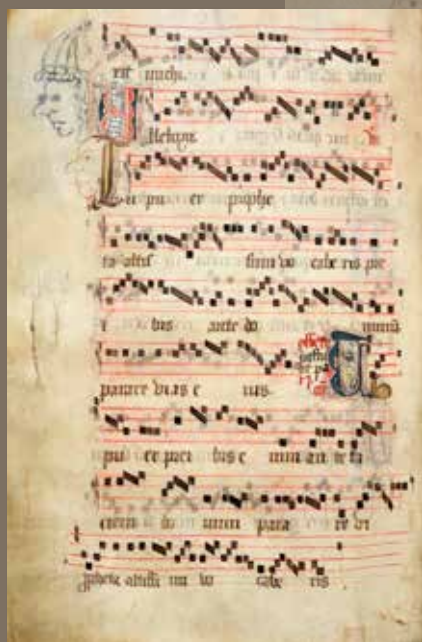 rit michi.
lleluya.
u pu er prophe
ta altis simi vo cabe ris pre
i bis ante do minū
parare vias e ius.
pu er prei bis e nim an te fa
ciem do mini para re vi
pheta altissi mi vo cabe ris